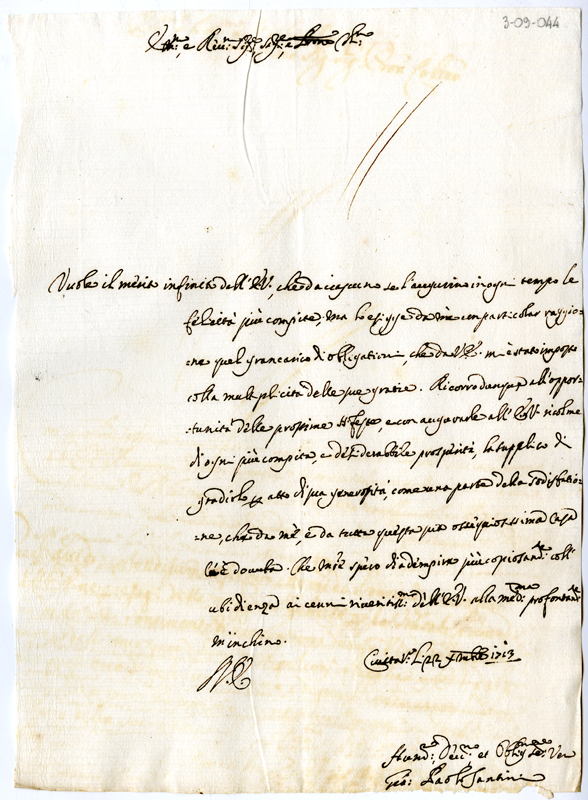 3-09-044
Ill.mo e Riu.mo Sig.r Sig.r e Prone Col.mo
Vuole il merito infinito dell'V.S., che da ciascuno se l'augurino in ogni tempo le
felicità più compite, ma lo esigge da me con particolar raggio=
ne quel gran carico di obligationi, che da V.S. m'è stato imposto
colla multiplicità delle sue gratie. Ricorro dunque all'oppor=
tunità delle prossime S. Feste, e con augurarle all'V.S. ricolme
di ogni più compita, e desiderabile prosperità, la supplico di
gradirle per atto di sua generosità, come una parte della sodisfatio=
ne, che da me, e da tutta questa sua ossequiosissima Casa
le è dovuta. Che mentre spero di adempire più copiosam.te coll'
ubidienza ai cenni riveritiss.mi dell'V.S. alla med.ma profondam.te
m'inchino.
D. V.S.
Civitav.a li 22 Xmbre 1713
Hum.mo Dev.mo et Obl.mo Ser. Vero
Gio: Paolo Santini